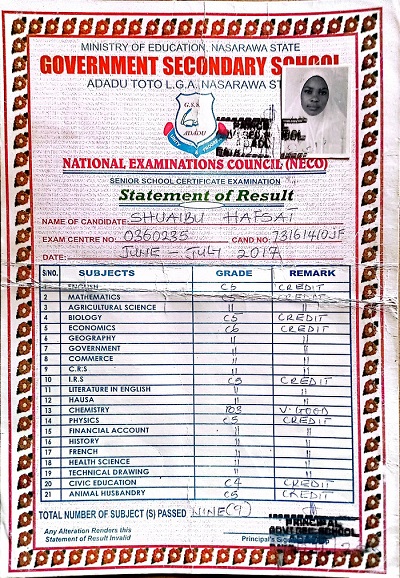 MINISTRY OF EDUCATION, NASARAWA STATE
GOVERNMENT SECONDARY SCHOOL
ADADU TOTO L.G.A, NASARAWA ST
G.S.S
ADADU
NATIONAL EXAMINATIONS COUNCIL (NECO)
SENIOR SCHOOL CERTIFICATE EXAMINATION
Statement of Result
NAME OF CANDIDATE: SHUAIBU HAFSAT
EXAM CENTRE NO: 0360235 CAND NO: 73161410JF
DATE: JUNE - JULY 2017
S/NO. SUBJECTS GRADE REMARK
1 ENGLISH C5 CREDIT
2 MATHEMATICS C5 CREDIT
3 AGRICULTURAL SCIENCE " "
4 BIOLOGY C5 CREDIT
5 ECONOMICS C6 CREDIT
6 GEOGRAPHY " "
7 GOVERNMENT " "
8 COMMERCE " "
9 C.R.S " "
10 I.R.S CREDIT
11 LITERATURE IN ENGLISH " "
12 HAUSA " "
13 CHEMISTRY V. GOOD
14 PHYSICS C5 CREDIT
15 FINANCIAL ACCOUNT " "
16 HISTORY " "
17 FRENCH " "
18 HEALTH SCIENCE " "
19 TECHNICAL DRAWING " "
20 CIVIC EDUCATION C4 CREDIT
21 ANIMAL HUSBANDRY C5 CREDIT
TOTAL NUMBER OF SUBJECT (S) PASSED NINE (9)
PRINCIPAL
Any Alteration Renders this
Statement of Result Invalid
Principal's